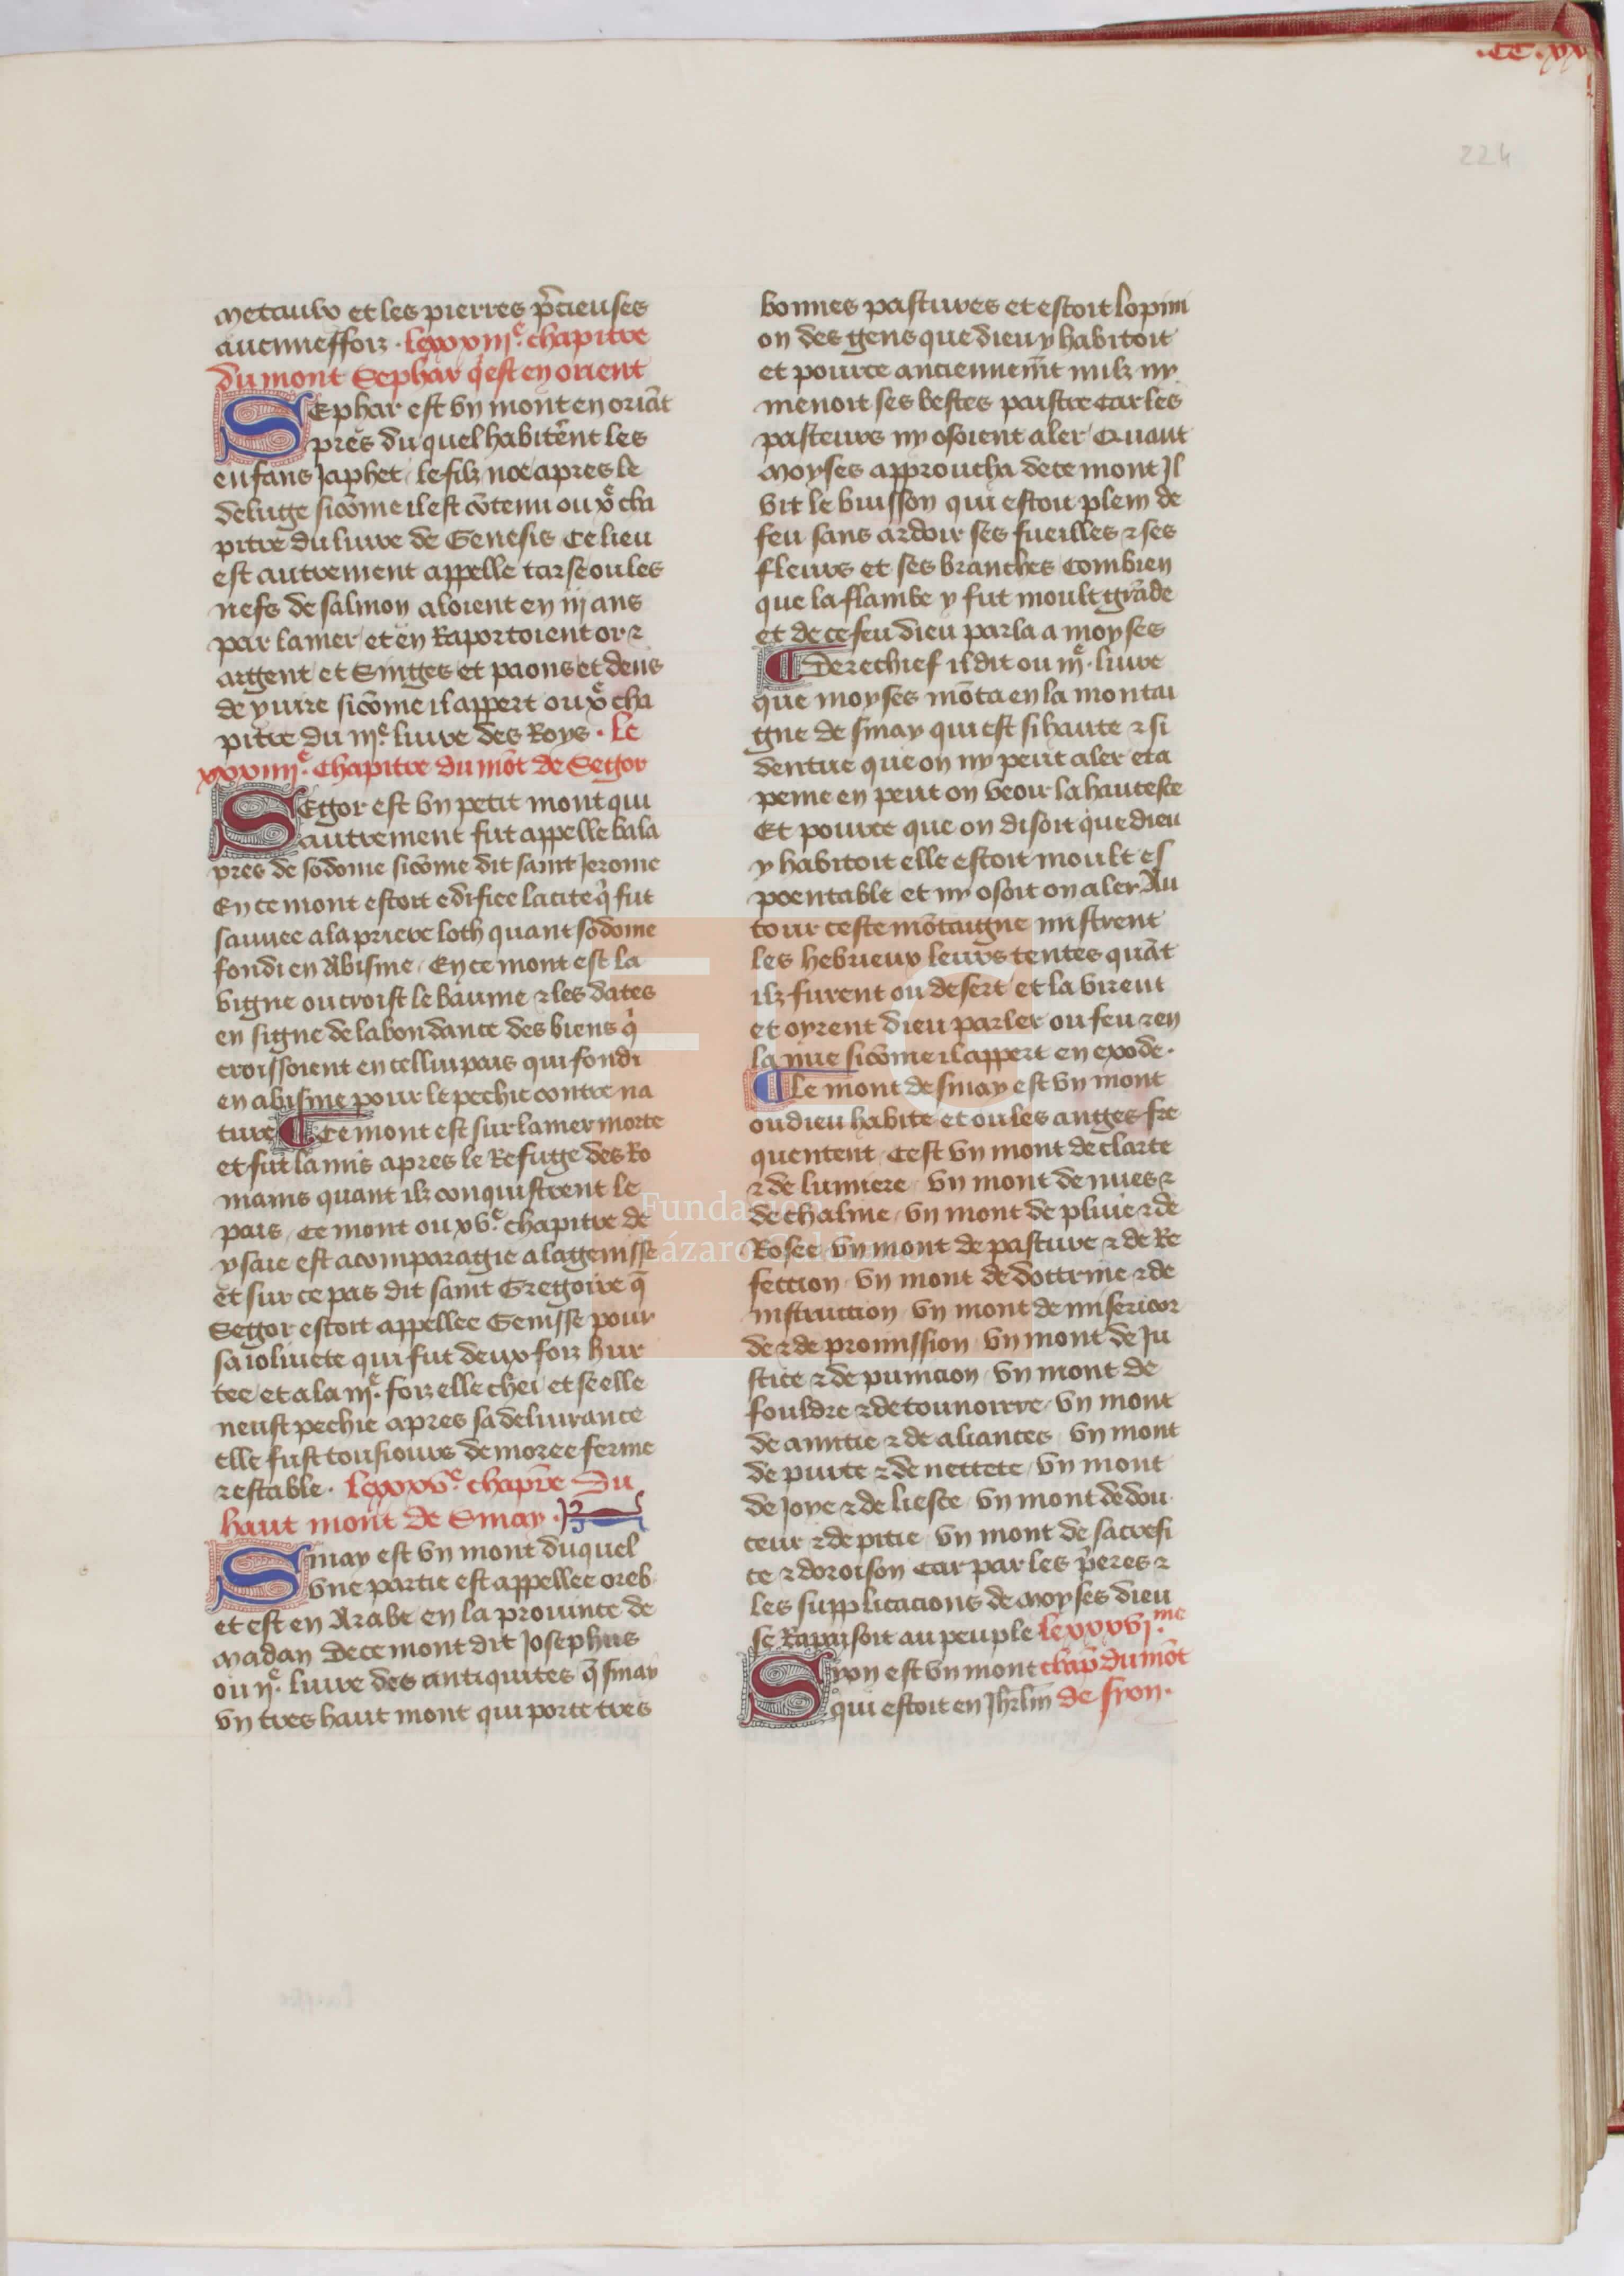 .CC.xx
224
metaulx et les pierres p̃cieuses
aucuneffoiz · le xxxiii.e chapitre
du mont Sephar q̃ est en orient
SEphar est vn mont en oriãt
pres du quel habitẽrent les
enfans Japhet le filz noe apres le
deluge sicõme il est cõtenu ou x.e cha
pitre du liure de Genesis Ce lieu
est autrement appelle tarse ou les
nefs de salmon aloient en iij ans
par la mer et en Raportoient or ⁊
argent et Singes et paons et dens
de yuire sicõme il appert ou x.e cha
pitre du iij.e liure des Roys · Le
xxxiiii.e Chapitre du mõt de Segor
SEgor est vn petit mont qui
autrement fut appelle bala
pres de sodome sicõme dit saint Jerome
En ce mont estoit edifiee la cite q̃ fut
sauuee a la priere loth quant sodome
fondi en Abisme En ce mont est la
vigne ou croist le baume ⁊ les dates
en signe de labondance des biens q̃
croissoient en cellui pais qui fondi
en abisme pour le pechie contre na
ture Ce mont est sur la mer morte
et fut la mis apres le Refuge des Ro
mains quant ilz conquistrent le
pais Ce mont ou xv.e chapitre de
ysaie est acomparagie a la genisse
et sur ce pas dit saint Gregoire q̃
Segor estoit appellee Genisse pour
sa ioliuete qui fut deux foiz hur
tee et a la iij.e foiz elle chei et se elle
neust pechie apres sa deliurance
elle fust tousiours demoree ferme
⁊ estable · le xxxv.e chap̃re Du
haut mont de Sinay ·
Sinay est vn mont duquel
vne partie est appellee oreb
et est en Arabe en la prouince de
madan De ce mont dit Josephus
ou ij.e liure des antiquites q̃ sinay
vn tres haut mont qui porte tres
bonnes pastures et estoit lopini
on des gens que dieu y habitoit
et pource anciennemẽt nulz ny
menoit ses bestes paistre Car les
pasteurs ny osoient aler Quant
moyses approucha de ce mont Jl
vit le buisson qui estoit plein de
feu sans ardoir ses fueilles ⁊ ses
fleurs et ses branches Combien
que la flambe y fut moult grãde
et de ce feu dieu parla a moyses
Derechief il dit ou iij.e liure
que moyses mõta en la montai
gne de sinay qui est si haute ⁊ si
dentue que on ny peut aler et a
peine en peut on veoir la hautesce
Et pource que on disoit que dieu
y habitoit elle estoit moult es
poentable et ny osoit on aler Au
tour ceste mõtaigne mistrent
les hebrieux leurs tentes quãt
ilz furent ou desert et la virent
et oyrent dieu parler ou feu ⁊ en
la nue sicõme il appert en exode ·
Le mont de sinay est vn mont
ou dieu habite et ou les anges fre
quentent Cest vn mont de clarte
⁊ de lumiere vn mont de nues ⁊
de chaline vn mont de pluie ⁊ de
Rosee vn mont de pasture ⁊ de Re
fection vn mont de doctrine ⁊ de
instruction vn mont de misericor
de ⁊ de promission vn mont de Ju
stice ⁊ de punicion vn mont de
fouldre ⁊ de tounoirre vn mont
de amitie ⁊ de aliances vn mont
de purte ⁊ de nettete vn mont
de Joye ⁊ de liesce vn mont de dou
ceur ⁊ de pitie vn mont de sacrefi
ce ⁊ doroison Car par les p̃eres ⁊
les supplicacions de moyses dieu
se Rapaisoit au peuple le xxxvi.me
Syon est vn mont chap̃ du mõt
qui estoit en Jhrl̃m de syon ·
Fundación
Lázaro Galdiano